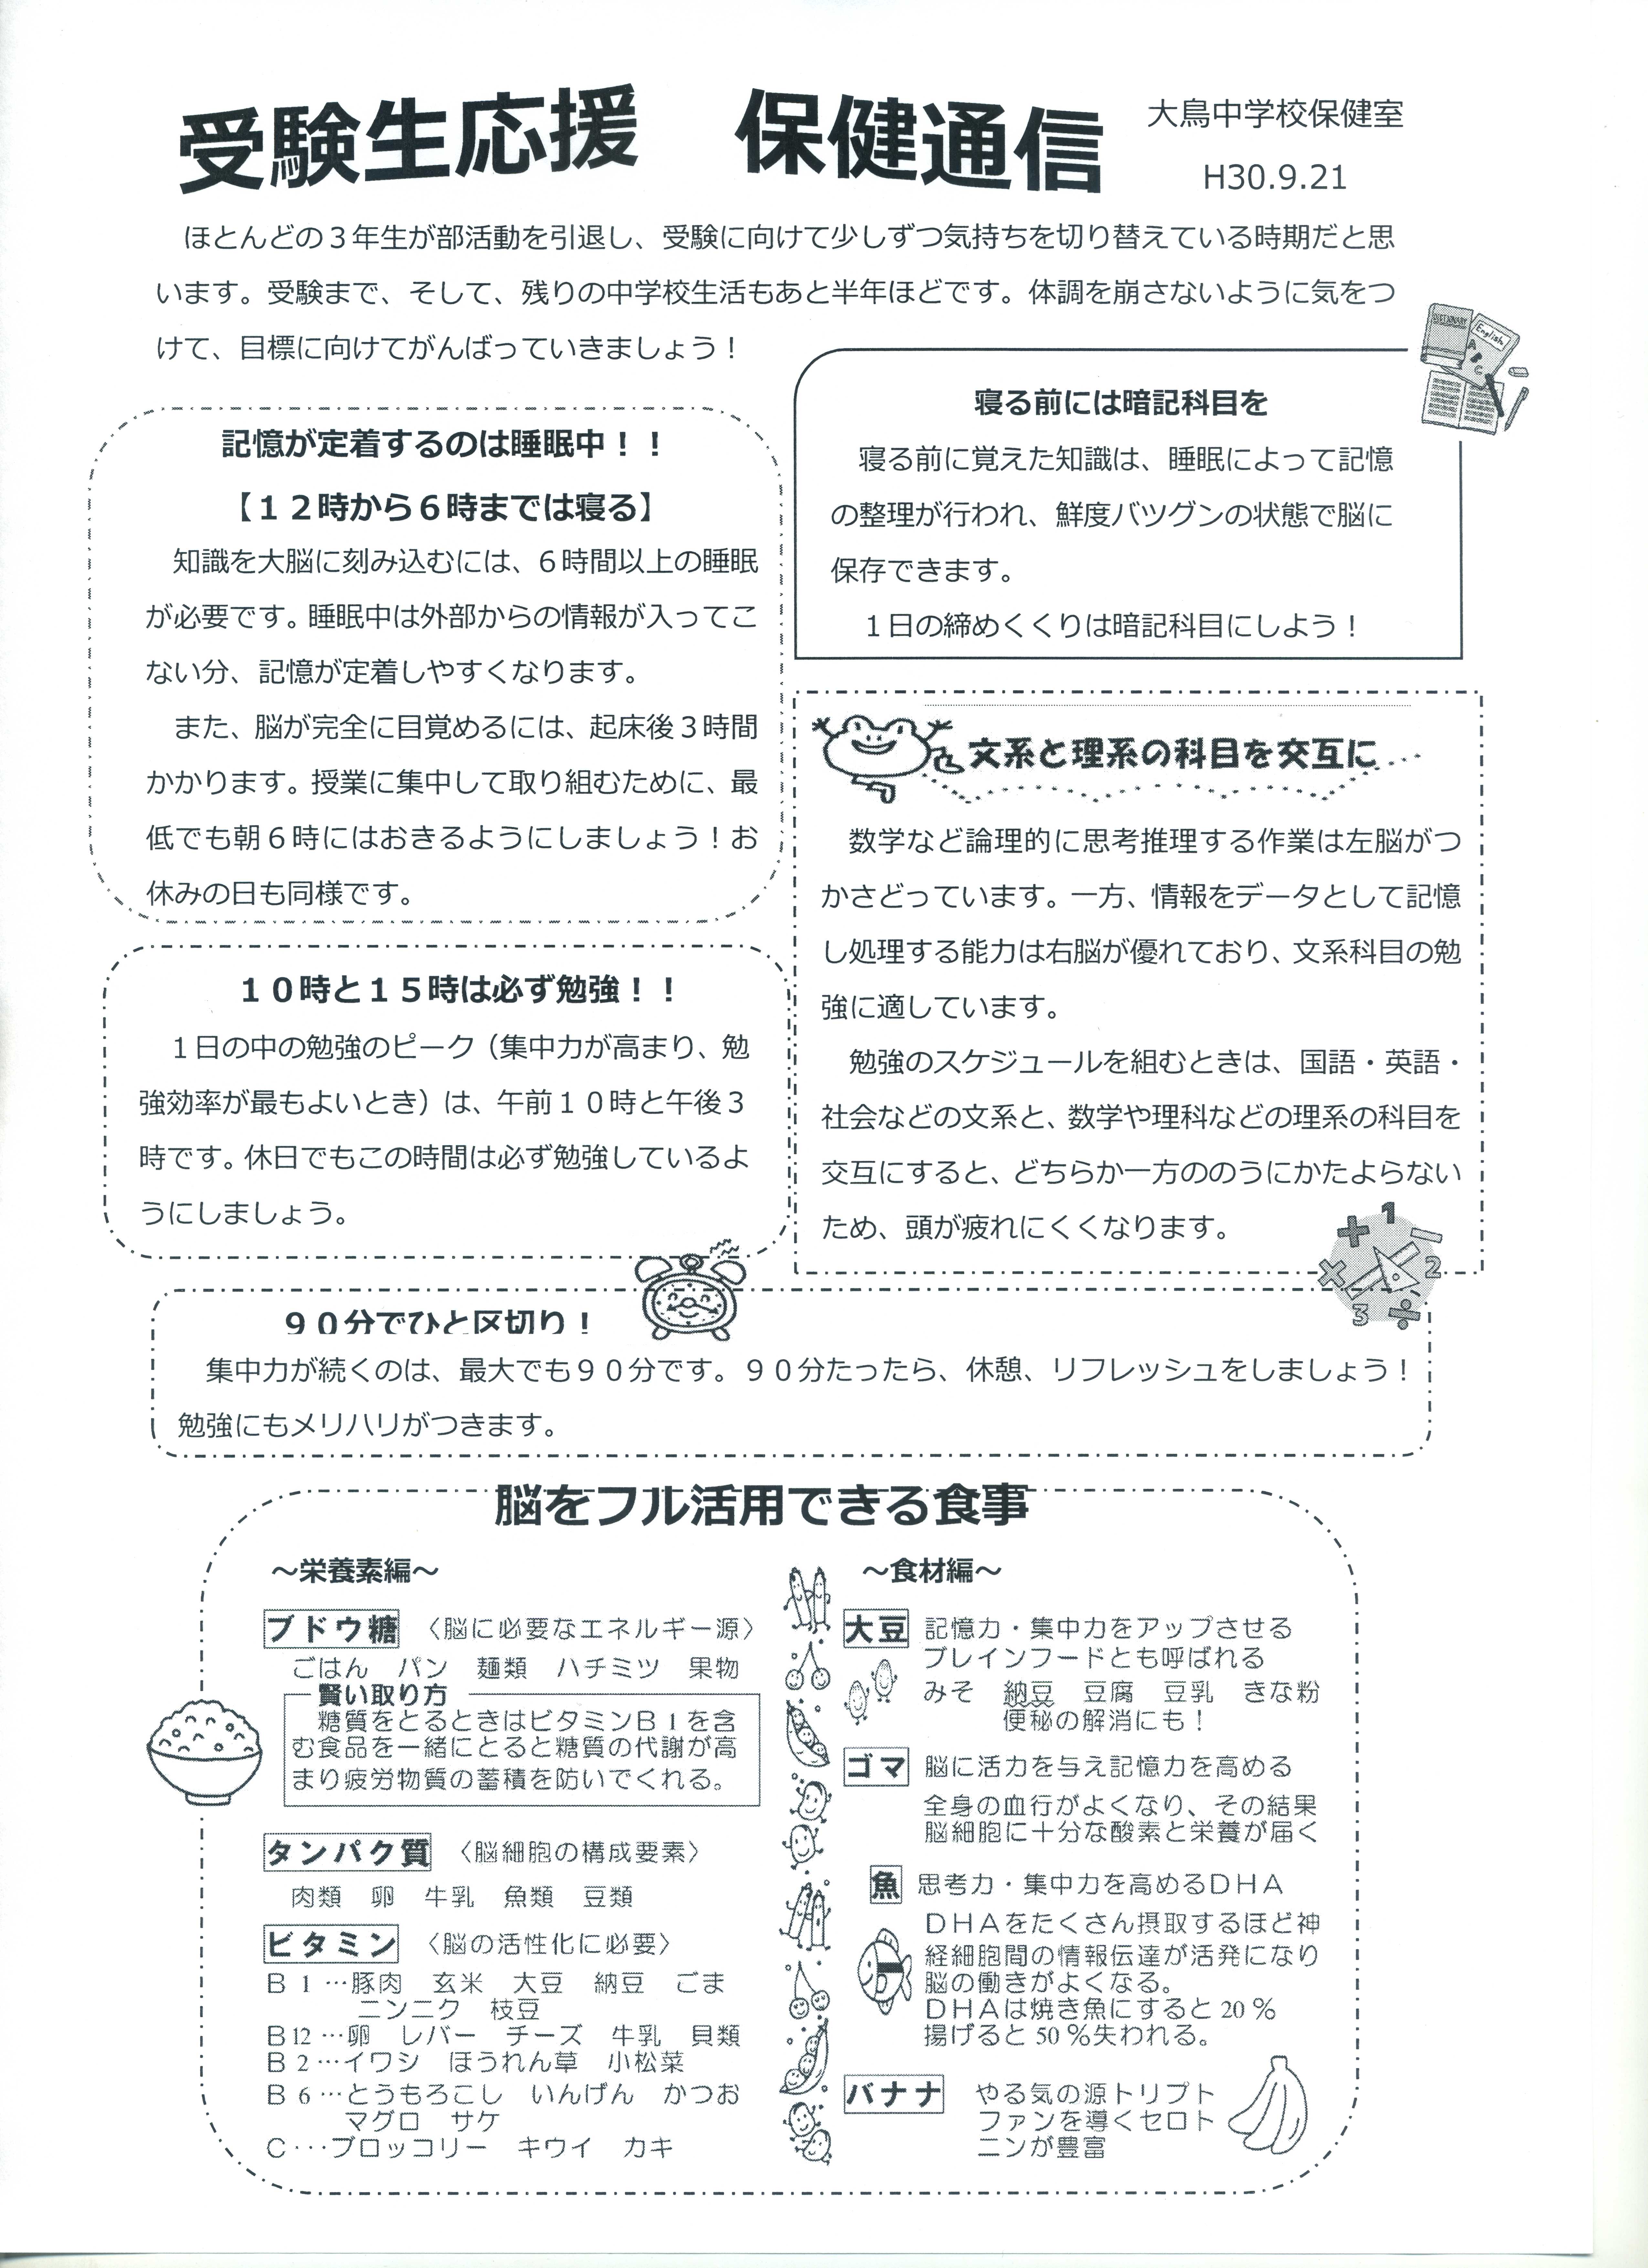 受験生応援　保健通信
大鳥中学校保健室
H30.9.21
ほとんどの３年生が部活動を引退し、受験に向けて少しずつ気持ちを切り替えている時期だと思
います。受験まで、そして、残りの中学校生活もあと半年ほどです。体調を崩さないように気をつ
けて、目標に向けてがんばっていきましょう！
記憶が定着するのは睡眠中！！
【１２時から６時までは寝る】
知識を大脳に刻み込むには、６時間以上の睡眠
が必要です。睡眠中は外部からの情報が入ってこ
ない分、記憶が定着しやすくなります。
また、脳が完全に目覚めるには、起床後３時間
かかります。授業に集中して取り組むために、最
低でも朝６時にはおきるようにしましょう！お
休みの日も同様です。
DICTIONARY
English
A
B
C
寝る前には暗記科目を
寝る前に覚えた知識は、睡眠によって記憶
の整理が行われ、鮮度バツグンの状態で脳に
保存できます。
１日の締めくくりは暗記科目にしよう！
文系と理系の科目を交互に
数学など論理的に思考推理する作業は左脳がつ
かさどっています。一方、情報をデータとして記憶
し処理する能力は右脳が優れており、文系科目の勉
強に適しています。
勉強のスケジュールを組むときは、国語・英語・
社会などの文系と、数学や理科などの理系の科目を
交互にすると、どちらか一方ののうにかたよらない
ため、頭が疲れにくくなります。
＋ 1 － × 2 3 ÷
１０時と１５時は必ず勉強！！
１日の中の勉強のピーク（集中力が高まり、勉
強効率が最もよいとき）は、午前１０時と午後３
時です。休日でもこの時間は必ず勉強しているよ
うにしましょう。
９０分でひと区切り！
集中力が続くのは、最大でも９０分です。９０分たったら、休憩、リフレッシュをしましょう！
勉強にもメリハリがつきます。
脳をフル活用できる食事
～栄養素編～
ブドウ糖　〈脳に必要なエネルギー源〉
ごはん　パン　麺類　ハチミツ　果物
賢い取り方
糖質をとるときはビタミンＢ１を含
む食品を一緒にとると糖質の代謝が高
まり疲労物質の蓄積を防いでくれる。
タンパク質　〈脳細胞の構成要素〉
肉類　卵　牛乳　魚類　豆類
ビタミン　〈脳の活性化に必要〉
Ｂ 1 …豚肉　玄米　大豆　納豆　ごま
ニンニク　枝豆
Ｂ12 …卵　レバー　チーズ　牛乳　貝類
Ｂ 2 …イワシ　ほうれん草　小松菜
Ｂ 6 …とうもろこし　いんげん　かつお
マグロ　サケ
Ｃ…ブロッコリー　キウイ　カキ
～食材編～
大豆　記憶力・集中力をアップさせる
ブレインフードとも呼ばれる
みそ　納豆　豆腐　豆乳　きな粉
便秘の解消にも！
ゴマ　脳に活力を与え記憶力を高める
全身の血行がよくなり、その結果
脳細胞に十分な酸素と栄養が届く
魚　思考力・集中力を高めるＤＨＡ
ＤＨＡをたくさん摂取するほど神
経細胞間の情報伝達が活発になり
脳の働きがよくなる。
ＤＨＡは焼き魚にすると 20 ％
揚げると 50 ％失われる。
バナナ　やる気の源トリプト
ファンを導くセロト
ニンが豊富